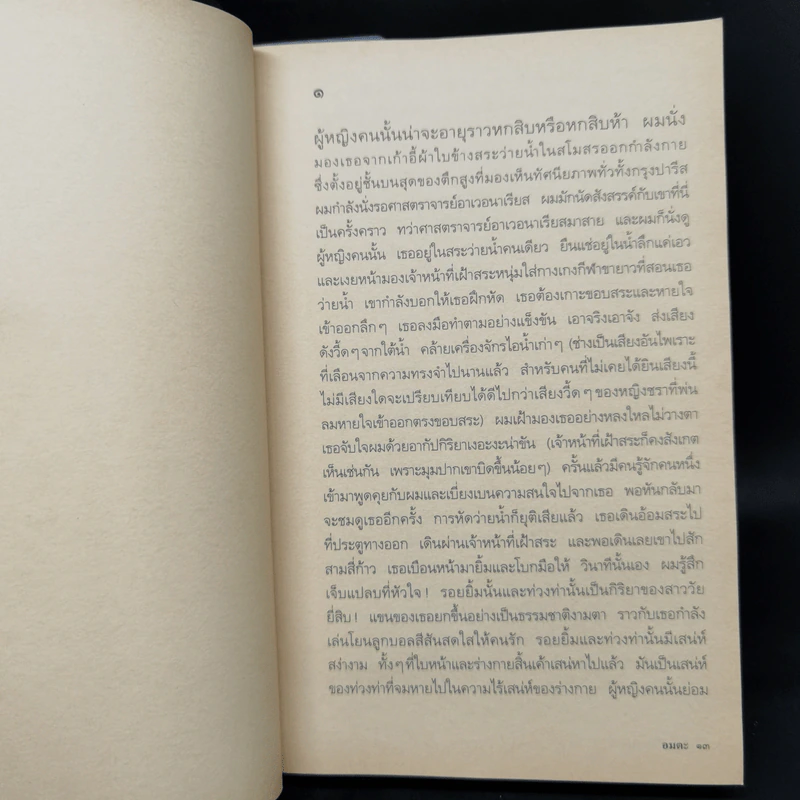 ๑
ผู้หญิงคนนั้นน่าจะอายุราวหกสิบหรือหกสิบห้า ผมนั่ง
มองเธอจากเก้าอี้ผ้าใบข้างสระว่ายน้ำในสโมสรออกกำลังกาย
ซึ่งตั้งอยู่ชั้นบนสุดของตึกสูงที่มองเห็นทัศนียภาพทั่วทั้งกรุงปารีส
ผมกำลังนั่งรอศาสตราจารย์อาเวอนาเรียส ผมมักนัดสังสรรค์กับเขาที่นี่
เป็นครั้งคราว ทว่าศาสตราจารย์อาเวอนาเรียสมาสาย และผมก็นั่งดู
ผู้หญิงคนนั้น เธออยู่ในสระว่ายน้ำคนเดียว ยืนแช่อยู่ในน้ำลึกแค่เอว
และเงยหน้ามองเจ้าหน้าที่เฝ้าสระหนุ่มใส่กางเกงกีฬาขายาวที่สอนเธอ
ว่ายน้ำ เขากำลังบอกให้เธอฝึกหัด เธอต้องเกาะขอบสระและหายใจ
เข้าออกลึกๆ เธอลงมือทำตามอย่างแข็งขัน เอาจริงเอาจัง ส่งเสียง
ดังวี้ดๆจากใต้น้ำ คล้ายเครื่องจักรไอน้ำเก่าๆ (ช่างเป็นเสียงอันไพเราะ
ที่เลือนจากความทรงจำไปนานแล้ว สำหรับคนที่ไม่เคยได้ยินเสียงนี้
ไม่มีเสียงใดจะเปรียบเทียบได้ดีไปกว่าเสียงวี้ดๆของหญิงชราที่พ่น
ลมหายใจเข้าออกตรงขอบสระ) ผมเฝ้ามองเธออย่างหลงใหลไม่วางตา
เธอจับใจผมด้วยอากัปกิริยาเงอะงะน่าขัน (เจ้าหน้าที่เฝ้าสระก็คงสังเกต
เห็นเช่นกัน เพราะมุมปากเขาบิดขึ้นน้อยๆ) ครั้นแล้วมีคนรู้จักคนหนึ่ง
เข้ามาพูดคุยกับผมและเบี่ยงเบนความสนใจไปจากเธอ พอหันกลับมา
จะชมดูเธออีกครั้ง การหัดว่ายน้ำก็ยุติเสียแล้ว เธอเดินอ้อมสระไป
ที่ประตูทางออก เดินผ่านเจ้าหน้าที่เฝ้าสระ และพอเดินเลยเขาไปสัก
สามสี่ก้าว เธอเบือนหน้ามายิ้มและโบกมือให้ วินาทีนั้นเอง ผมรู้สึก
เจ็บแปลบที่หัวใจ! รอยยิ้มนั้นและท่วงท่านั้นเป็นกิริยาของสาววัย
ยี่สิบ! แขนของเธอยกขึ้นอย่างเป็นธรรมชาติงามตา ราวกับเธอกำลัง
เล่นโยนลูกบอลสีสันสดใสให้คนรัก รอยยิ้มและท่วงท่านั้นมีเสน่ห์
สง่างาม ทั้งๆที่ใบหน้าและร่างกายสิ้นเค้าเสน่หาไปแล้ว มันเป็นเสน่ห์
ของท่วงท่าที่จมหายไปในความไร้เสน่ห์ของร่างกาย ผู้หญิงคนนั้นย่อม
อมตะ ๑๓